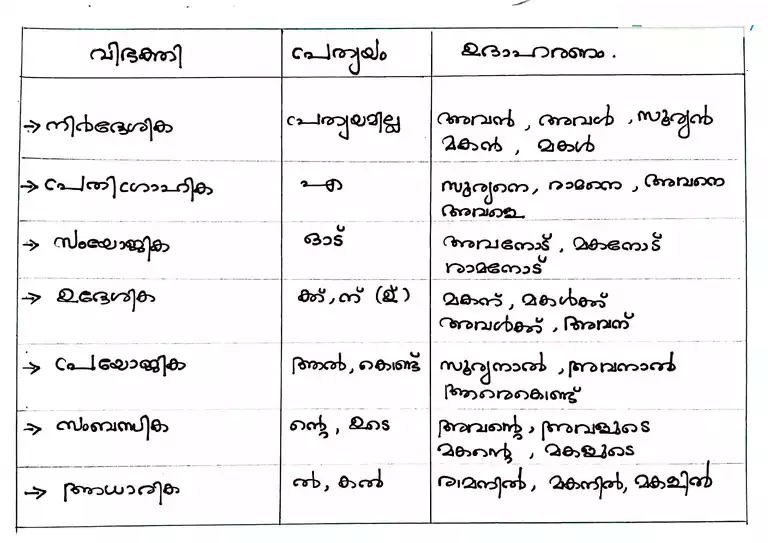 വിഭക്തി പ്രത്യയം ഉദാഹരണം.
→ നിർദ്ദേശിക പ്രത്യയമില്ല അവൻ, അവൾ, സൂര്യൻ
മകൻ, മകൾ
→ പ്രതിഗ്രാഹിക എ സൂര്യനെ, രാമനെ, അവനെ
അവളെ
→ സംയോജിക ഓട് അവനോട്, മകനോട്
രാമനോട്
→ ഉദ്ദേശിക ക്ക്, ന് (ഉ്) മകന്, മകൾക്ക്
അവൾക്ക്, അവന്
→ പ്രയോജിക ആൽ, കൊണ്ട് സൂര്യനാൽ, അവനാൽ
→ സംബന്ധിക ന്റെ, ഉടെ അവന്റെ, അവളുടെ
മകന്റെ, മകളുടെ
→ ആധാരിക ൽ, കൽ രാമനിൽ, മകനിൽ, മകളിൽ